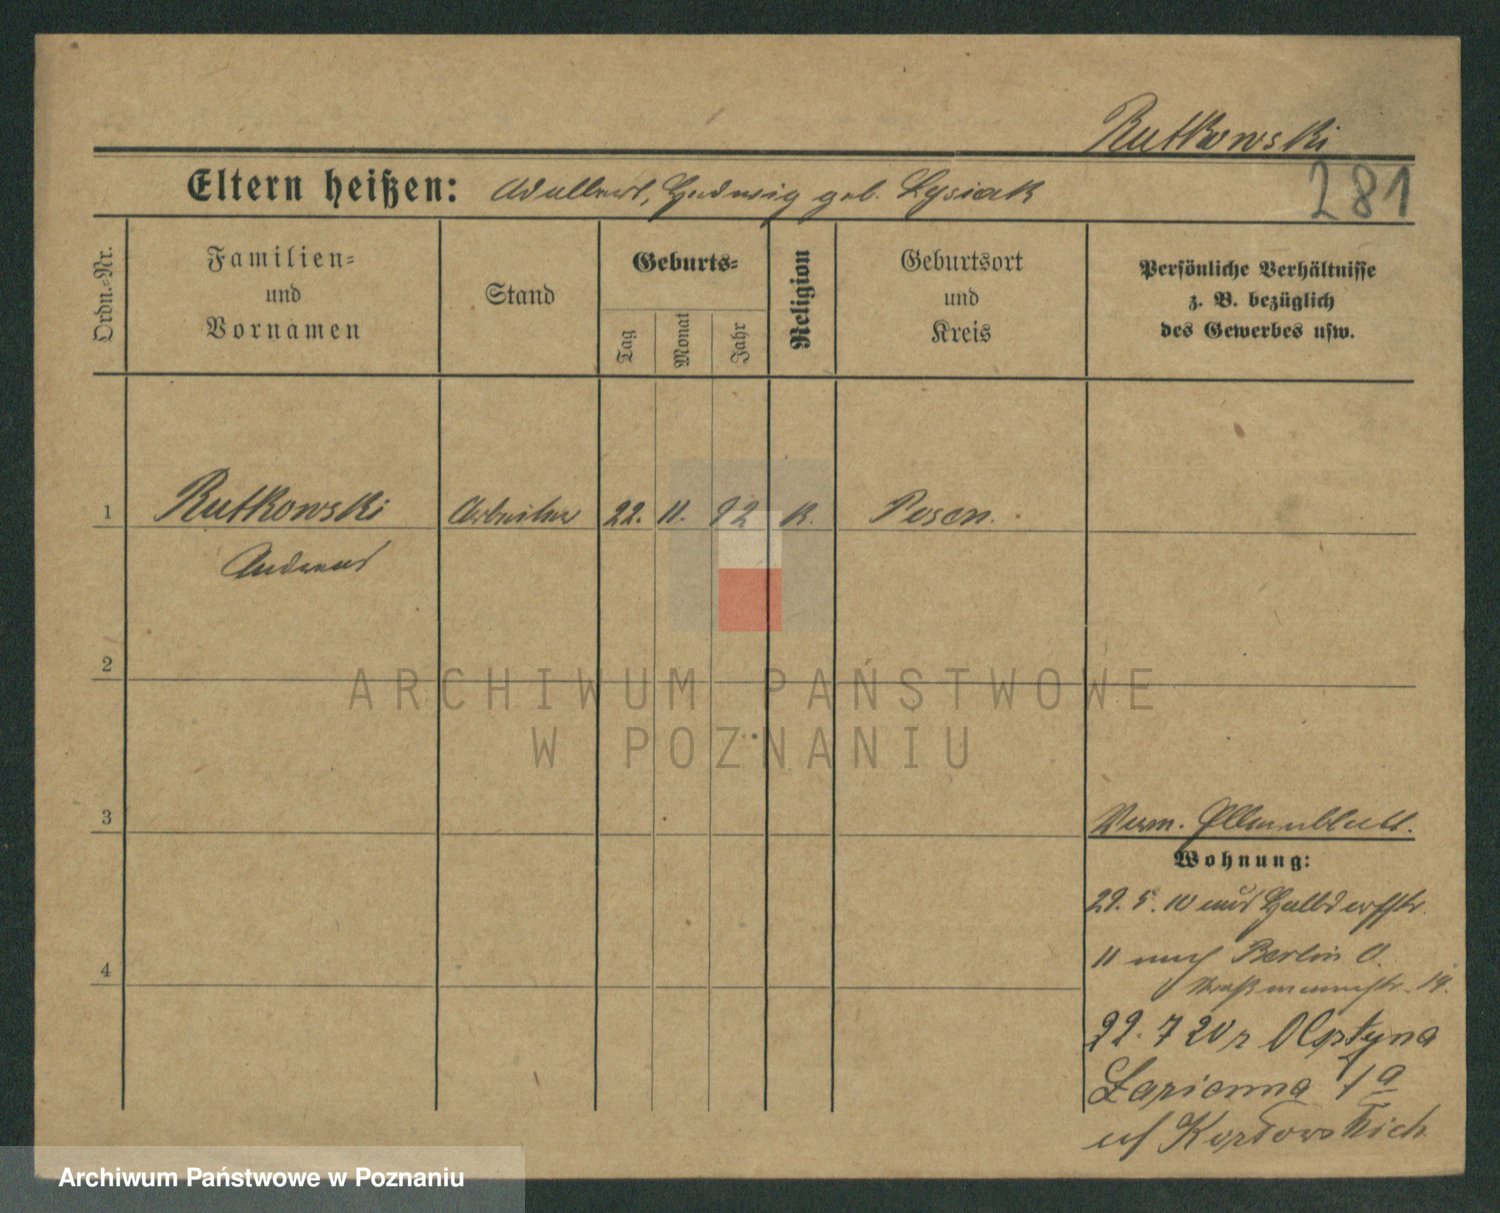 Rutkowski
281
Eltern heißen: Adalbert, Hedwig geb. Lysiak
Ordn.-Nr.
Familien-
und
Vornamen
Stand
Geburts-
Tag
Monat
Jahr
Religion
Geburtsort
und
Kreis
Persönliche Verhältnisse
z. B. bezüglich
des Gewerbes usw.
1 Rutkowski Arbeiter 22. 11. 92 k. Posen.
Andreas
2
ARCHIWUM PAŃSTWOWE
W POZNANIU
3
Verm.
Wohnung:
29. 5. 10 aus
11 nach Berlin O.
4
19.
22. 7 20 z Olsztyna
Łazienna 1a
Archiwum Państwowe w Poznaniu